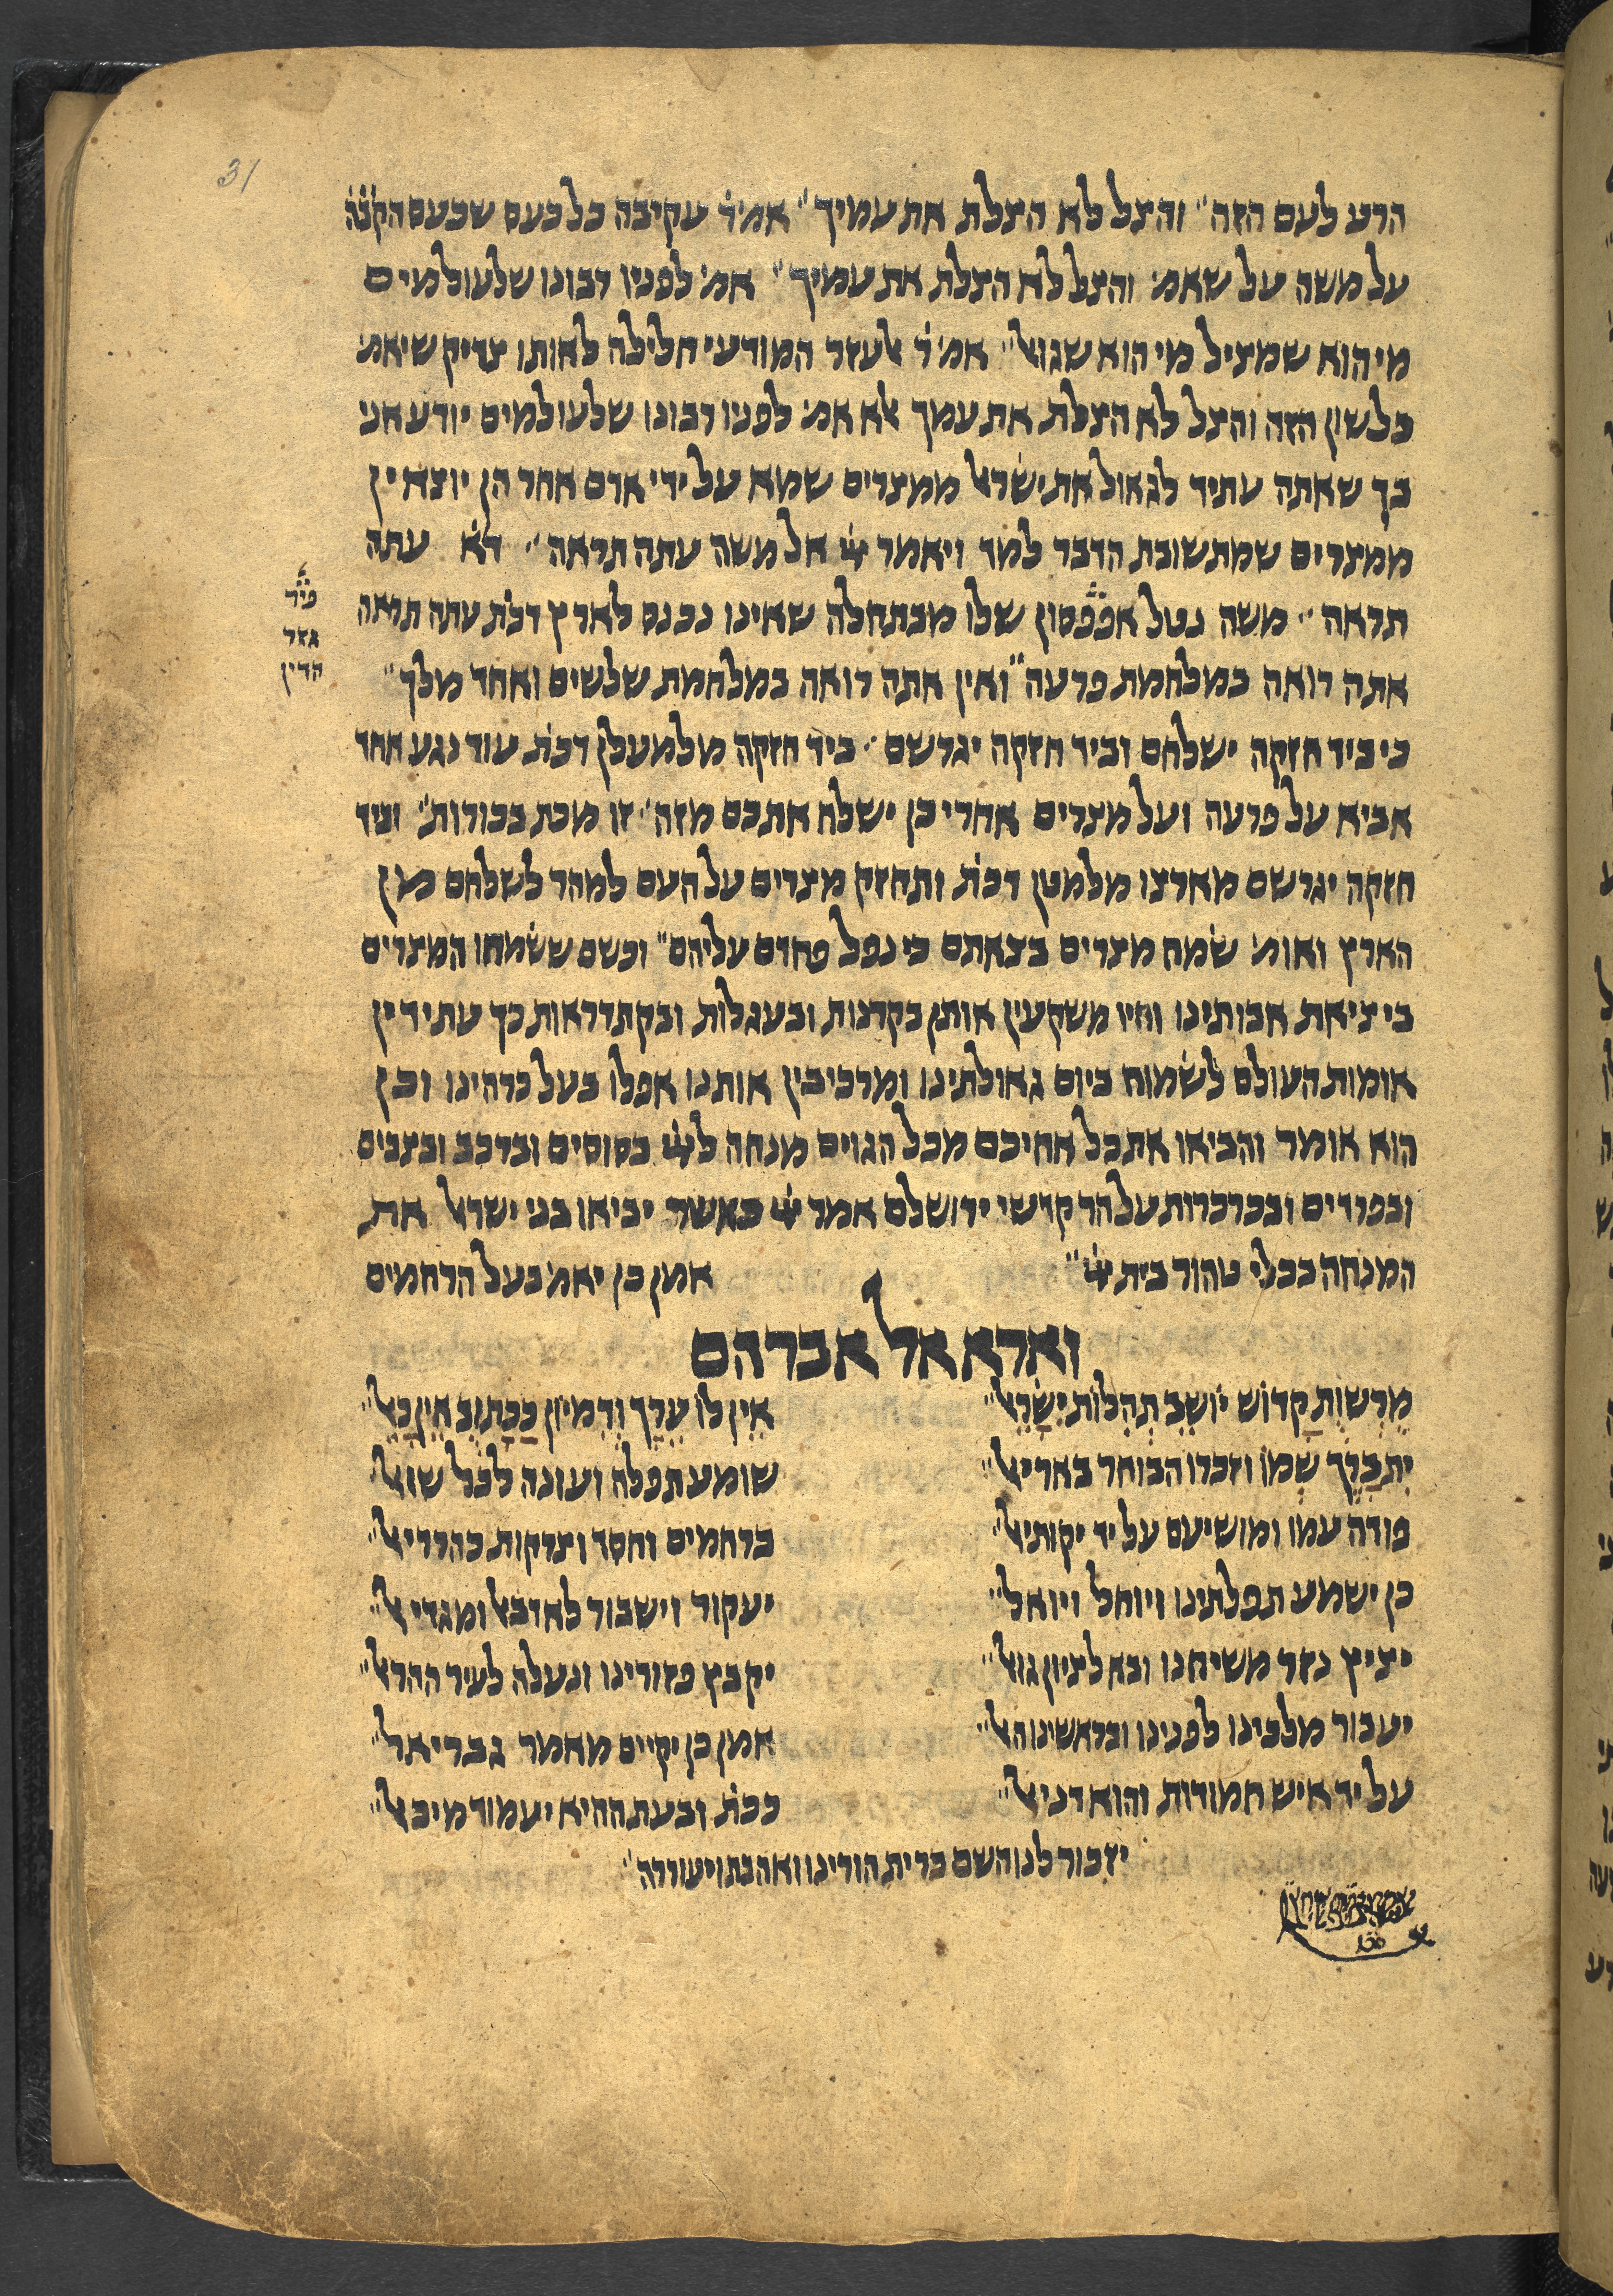 31
הרע לעם הזה״ והצל לא הצלת את עמיך״ אמ׳ר׳ עקיבה כל כעס שכעס הקבה
על משה על שאמ׳ והצל לא הצלת את עמיך״ אמ׳ לפניו רבונו שלעולמים
מי הוא שמציל מי הוא שגואל״ אמ׳ ר׳ אלעזר המודעי חלילה לאותו צדיק שיאמ׳
כלשון הזה והצל לא הצלת את עמך אלא אמ׳ לפניו רבונו שלעולמים יודע אני
בך שאתה עתיד לגאול את ישראל ממצרים שמא על ידי אדם אחר הן יוצאין
ממצרים שמתשובת הדבר למד ויאמר ייי אל משה עתה תראה״ ד׳א׳ עתה
תראה״ משה נטל אפפסון שלו מבתחלה שאינו נכנס לארץ דכת׳ עתה תראה
פיר׳
גזר
הדין
אתה רואה במלחמת פרעה״ ואין אתה רואה במלחמת שלשים ואחד מלך״
כי ביד חזקה ישלחם וביד חזקה יגרשם״ ביד חזקה מלמעלן דכת׳ עוד נגע אחד
אביא על פרעה ועל מצרים אחרי כן ישלח אתכם מזה״ זו מכת בכורות״ וביד
חזקה יגרשם מארצו מלמטן דכת׳ ותחזק מצרים על העם למהר לשלחם מן
הארץ ואומ׳ שמח מצרים בצאתם כי נפל פחדם עליהם״ וכשם ששמחו המצרים
ביציאת אבותינו והיו משקעין אותן בקרנות ובעגלות ובקתדראות כך עתידין
אומות העולם לשמוח ביום גאולתינו ומרכיבין אותנו אפלו בעל כרהינו וכן
הוא אומר והביאו את כל אחיכם מכל הגוים מנחה לייי בסוסים וברכב ובצבים
ובפרדים ובכרכרות על הר קדשי ירושלם אמר ייי כאשר יביאו בני ישראל את
המנחה בכלי טהור בית ייי״ אמן כן יאמ׳ בעל הרחמים
וארא אל אברהם
מרשות קדוש יושב תהלות ישראל״ אין לו ערך ודמיון ככתוב אין כאל״
יתברך שמו וזכרו הבוחר באריאל״ שומע תפלה ועונה לכל שואל
פודה עמו ומושיעם על יד יקותיאל״ ברחמים וחסד וצדקות כהררי אל״
כן ישמע תפלתינו ויוחל ויואל״ יעקור וישבור לאדבאל ומגדיאל״
יציץ נזר משיחנו ובא לציון גואל״ יקבץ פזורינו ונעלה לעיר ההראל״
יעבור מלכינו לפנינו ובראשינו האל״ אמן כן יקיים מאמר גבריאל״
על יד איש חמודות והוא דניאל״ ככת׳ ובעת ההיא יעמוד מיכאל״
יזכור לנו השם ברית הורינו ואהבתו יעוררה״